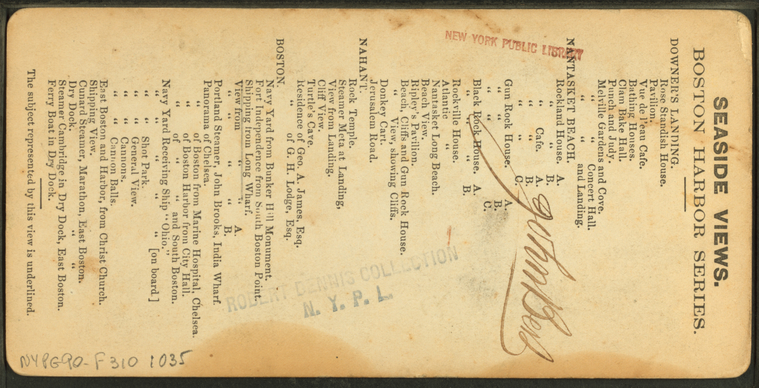 SEASIDE VIEWS.
BOSTON HARBOR SERIES.
DOWNER'S LANDING.
Rose Standish House.
Pavilion.
Vue de l'eau Cafe.
Bathing Houses.
Clam Bake Hall.
Punch and Judy.
Melville Gardens and Cove.
" " Concert Hall.
" " and Landing.
NANTASKET BEACH.
Rockland House. A.
" " B.
" Cafe. A.
" " B.
" " C.
Gun Rock House. A.
" " " B.
" " " C.
Black Rock House. A.
" " " B.
Rockville House.
Atlantic "
Nantasket Long Beach.
Beach View.
Ripley's Pavilion.
Beach, Cliffs and Gun Rock House.
" View, showing Cliffs.
Donkey Cart.
Jerusalem Road.
NAHANT.
Rock Temple.
Steamer Meta at Landing.
View from Landing.
Cliff View.
Turtle's Cave.
Residence of Geo. A. James, Esq.
" of G. H. Lodge, Esq.
BOSTON.
Navy Yard from Bunker Hill Monument.
Fort Independence from South Boston Point.
Shipping from Long Wharf.
View from " " A.
" " " " B.
Portland Steamer, John Brooks, India Wharf.
Panorama of Chelsea.
" of Boston from Marine Hospital, Chelsea.
" of Boston Harbor from City Hall.
" of " " and South Boston.
Navy Yard Receiving Ship "Ohio."
" " " " " [on board]
" " Shot Park.
" " General View.
" " Cannons.
" " Cannon Balls.
East Boston and Harbor, from Christ Church.
Shipping View.
Cunard Steamer, Marathon, East Boston.
Dry Dock.
Steamer Cambridge in Dry Dock, East Boston.
Ferry Boat in Dry Dock.
The subject represented by this view is underlined.
NEW YORK PUBLIC LIBRARY
ROBERT DENNIS COLLECTION
N. Y. P. L.
NYPG90-F310 1035